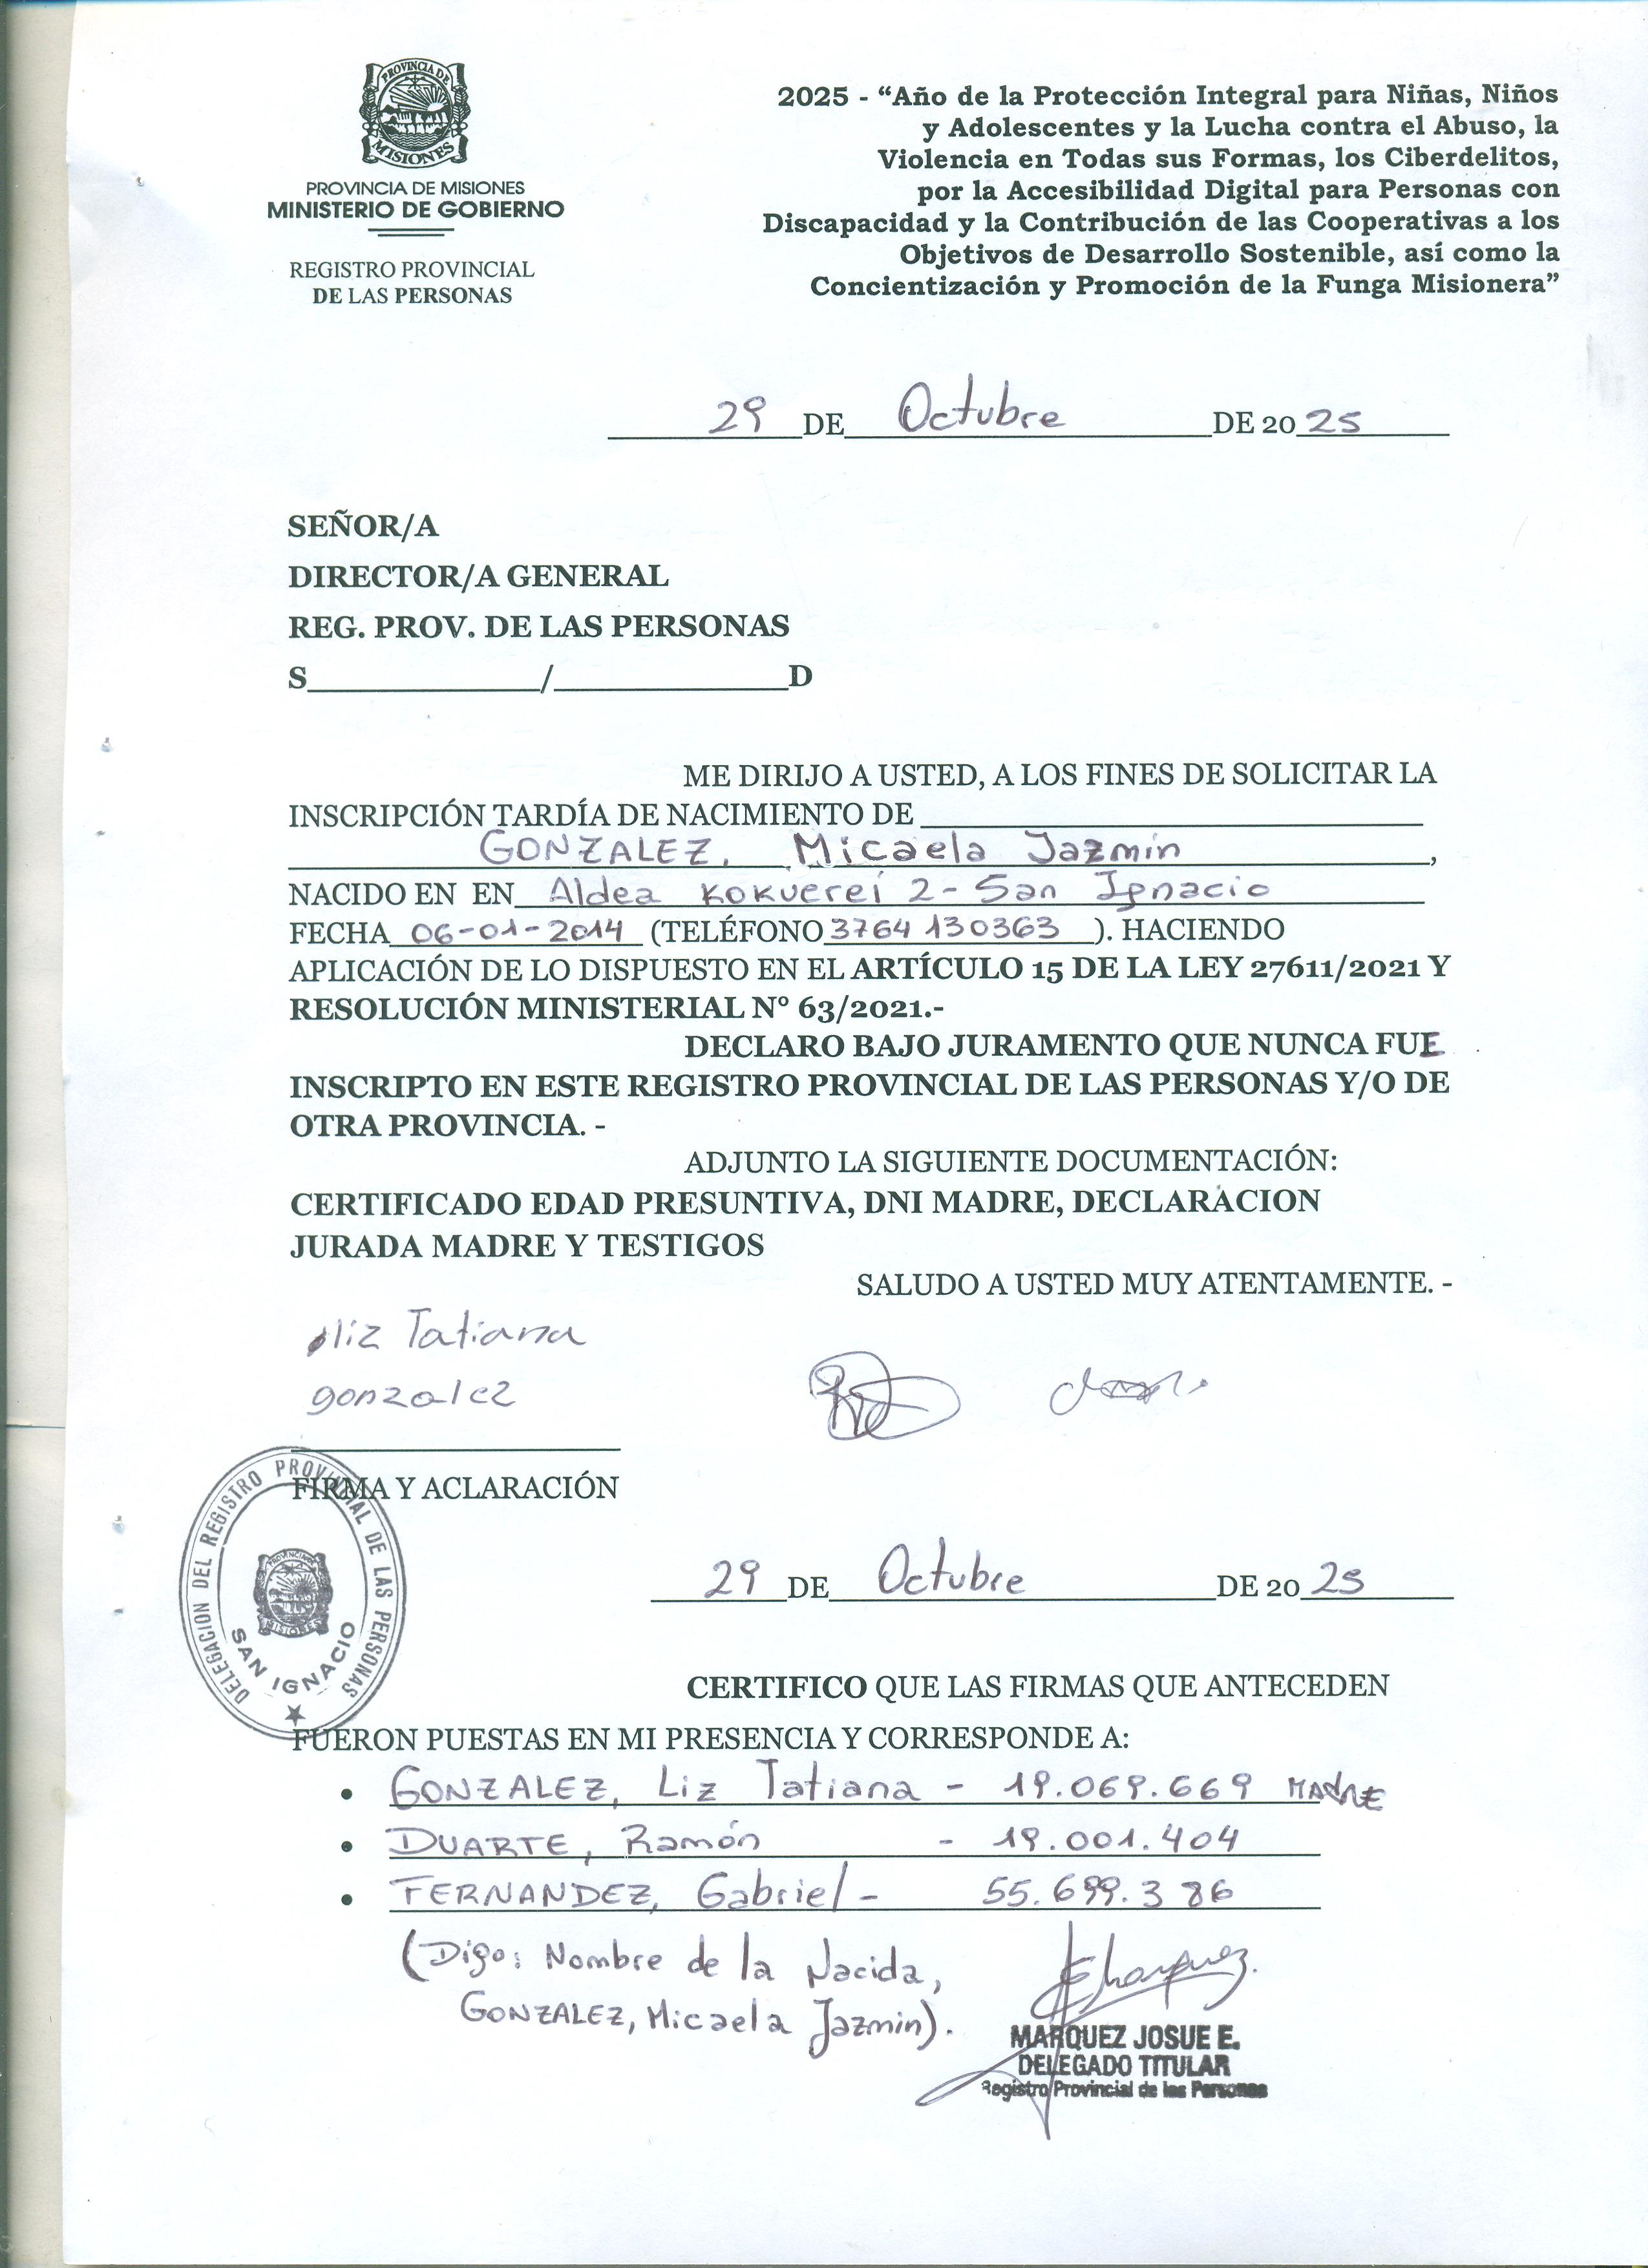 PROVINCIA DE
MISIONES
PROVINCIA DE MISIONES
MINISTERIO DE GOBIERNO
REGISTRO PROVINCIAL
DE LAS PERSONAS
2025 - “Año de la Protección Integral para Niñas, Niños
y Adolescentes y la Lucha contra el Abuso, la
Violencia en Todas sus Formas, los Ciberdelitos,
por la Accesibilidad Digital para Personas con
Discapacidad y la Contribución de las Cooperativas a los
Objetivos de Desarrollo Sostenible, así como la
Concientización y Promoción de la Funga Misionera”
29 DE Octubre DE 2025
SEÑOR/A
DIRECTOR/A GENERAL
REG. PROV. DE LAS PERSONAS
S____________/____________D
ME DIRIJO A USTED, A LOS FINES DE SOLICITAR LA
INSCRIPCIÓN TARDÍA DE NACIMIENTO DE
GONZALEZ, Micaela Jazmín,
NACIDO EN EN Aldea Kokuereí 2 - San Ignacio
FECHA 06-01-2014 (TELÉFONO 3764 130363 ). HACIENDO
APLICACIÓN DE LO DISPUESTO EN EL ARTÍCULO 15 DE LA LEY 27611/2021 Y
RESOLUCIÓN MINISTERIAL Nº 63/2021.-
DECLARO BAJO JURAMENTO QUE NUNCA FUE
INSCRIPTO EN ESTE REGISTRO PROVINCIAL DE LAS PERSONAS Y/O DE
OTRA PROVINCIA. -
ADJUNTO LA SIGUIENTE DOCUMENTACIÓN:
CERTIFICADO EDAD PRESUNTIVA, DNI MADRE, DECLARACION
JURADA MADRE Y TESTIGOS
SALUDO A USTED MUY ATENTAMENTE. -
Liz Tatiana
gonzalez
FIRMA Y ACLARACIÓN
DELEGACION DEL REGISTRO PROVINCIAL DE LAS PERSONAS
SAN IGNACIO
29 DE Octubre DE 2025
CERTIFICO QUE LAS FIRMAS QUE ANTECEDEN
FUERON PUESTAS EN MI PRESENCIA Y CORRESPONDE A:
• GONZALEZ, Liz Tatiana - 19.069.669 MADRE
• DUARTE, Ramón - 19.001.404
• FERNANDEZ, Gabriel - 55.699.386
(Digo: Nombre de la Nacida,
GONZALEZ, Micaela Jazmin).
MARQUEZ JOSUE E.
DELEGADO TITULAR
Registro Provincial de las Personas